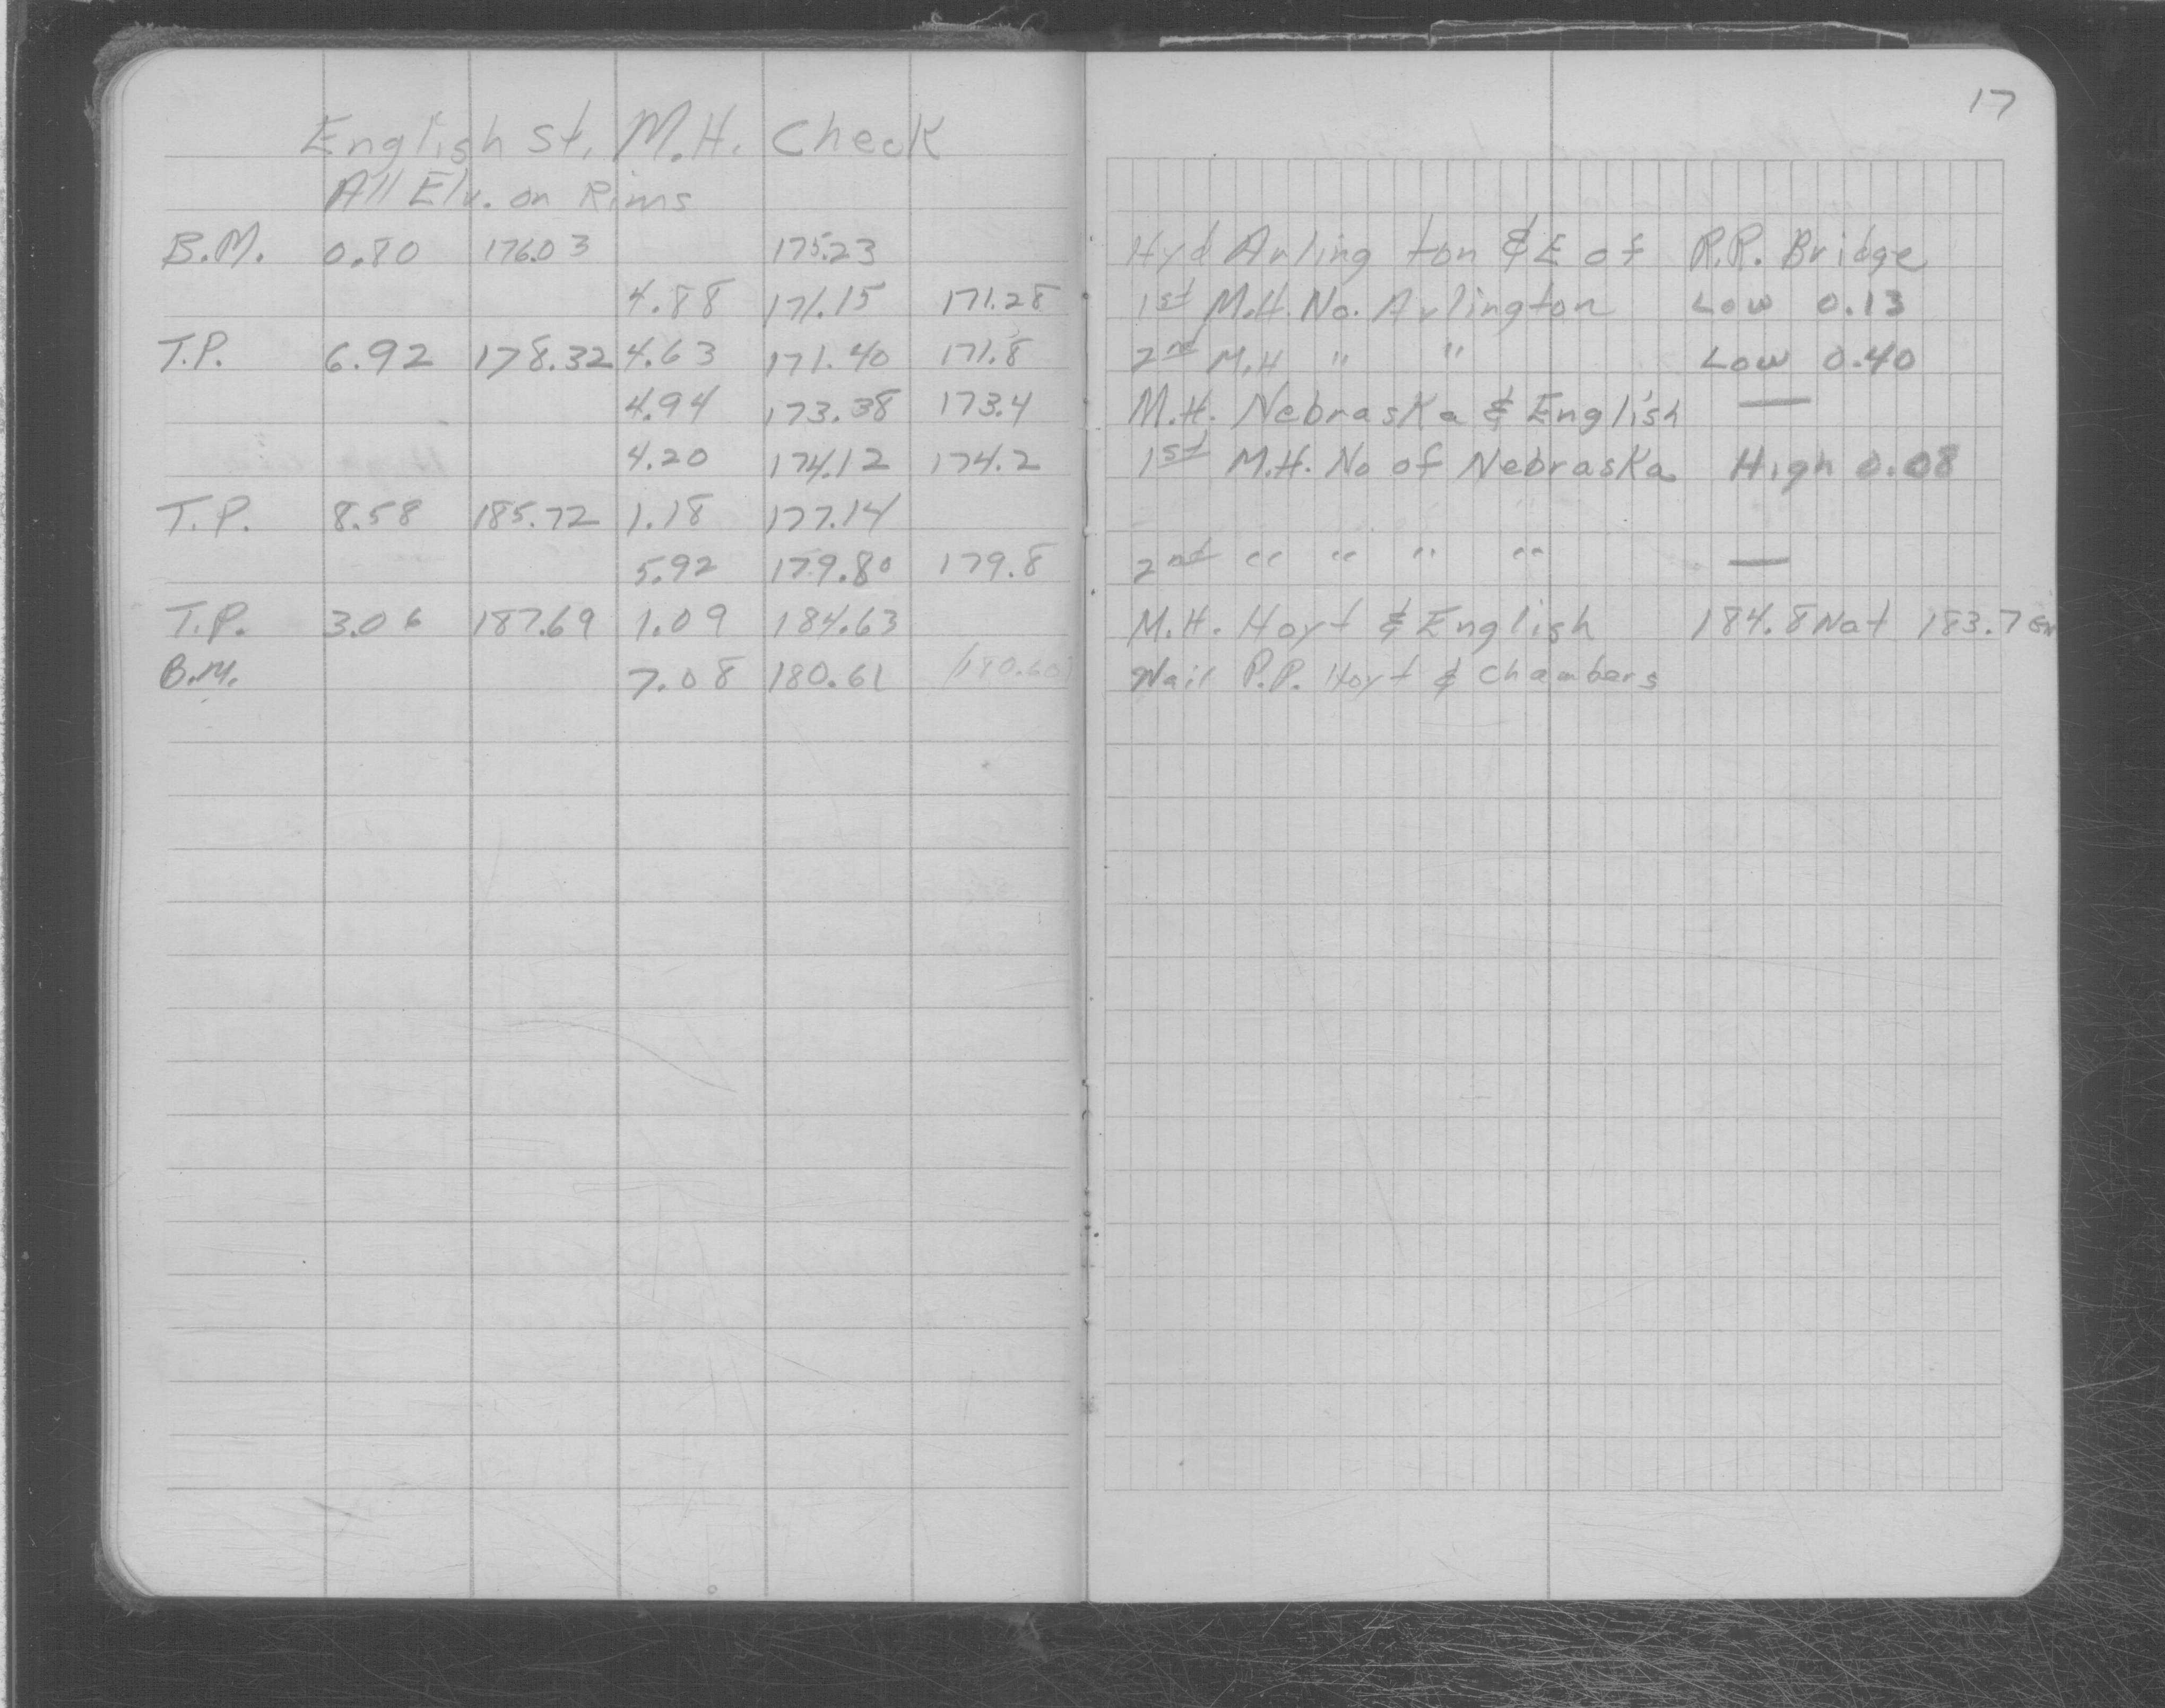 17
English St. M.H. Check
All Elv. on Rims
B.M. 0.80 176.03 175.23 Hyd Arlington & E of R.R. Bridge
4.88 171.15 171.28 1st M.H. No. Arlington Low 0.13
T.P. 6.92 178.32 4.63 171.40 171.8 2nd M.H " " Low 0.40
4.94 173.38 173.4 M.H. Nebraska & English —
4.20 174.12 174.2 1st M.H. No of Nebraska High 0.08
T.P. 8.58 185.72 1.18 177.14
5.92 179.80 179.8 2nd " " " " —
T.P. 3.06 187.69 1.09 184.63 M.H. Hoyt & English 184.8 Not 183.7
B.M. 7.08 180.61 (180.60) Nail P.P. Hoyt & Chambers